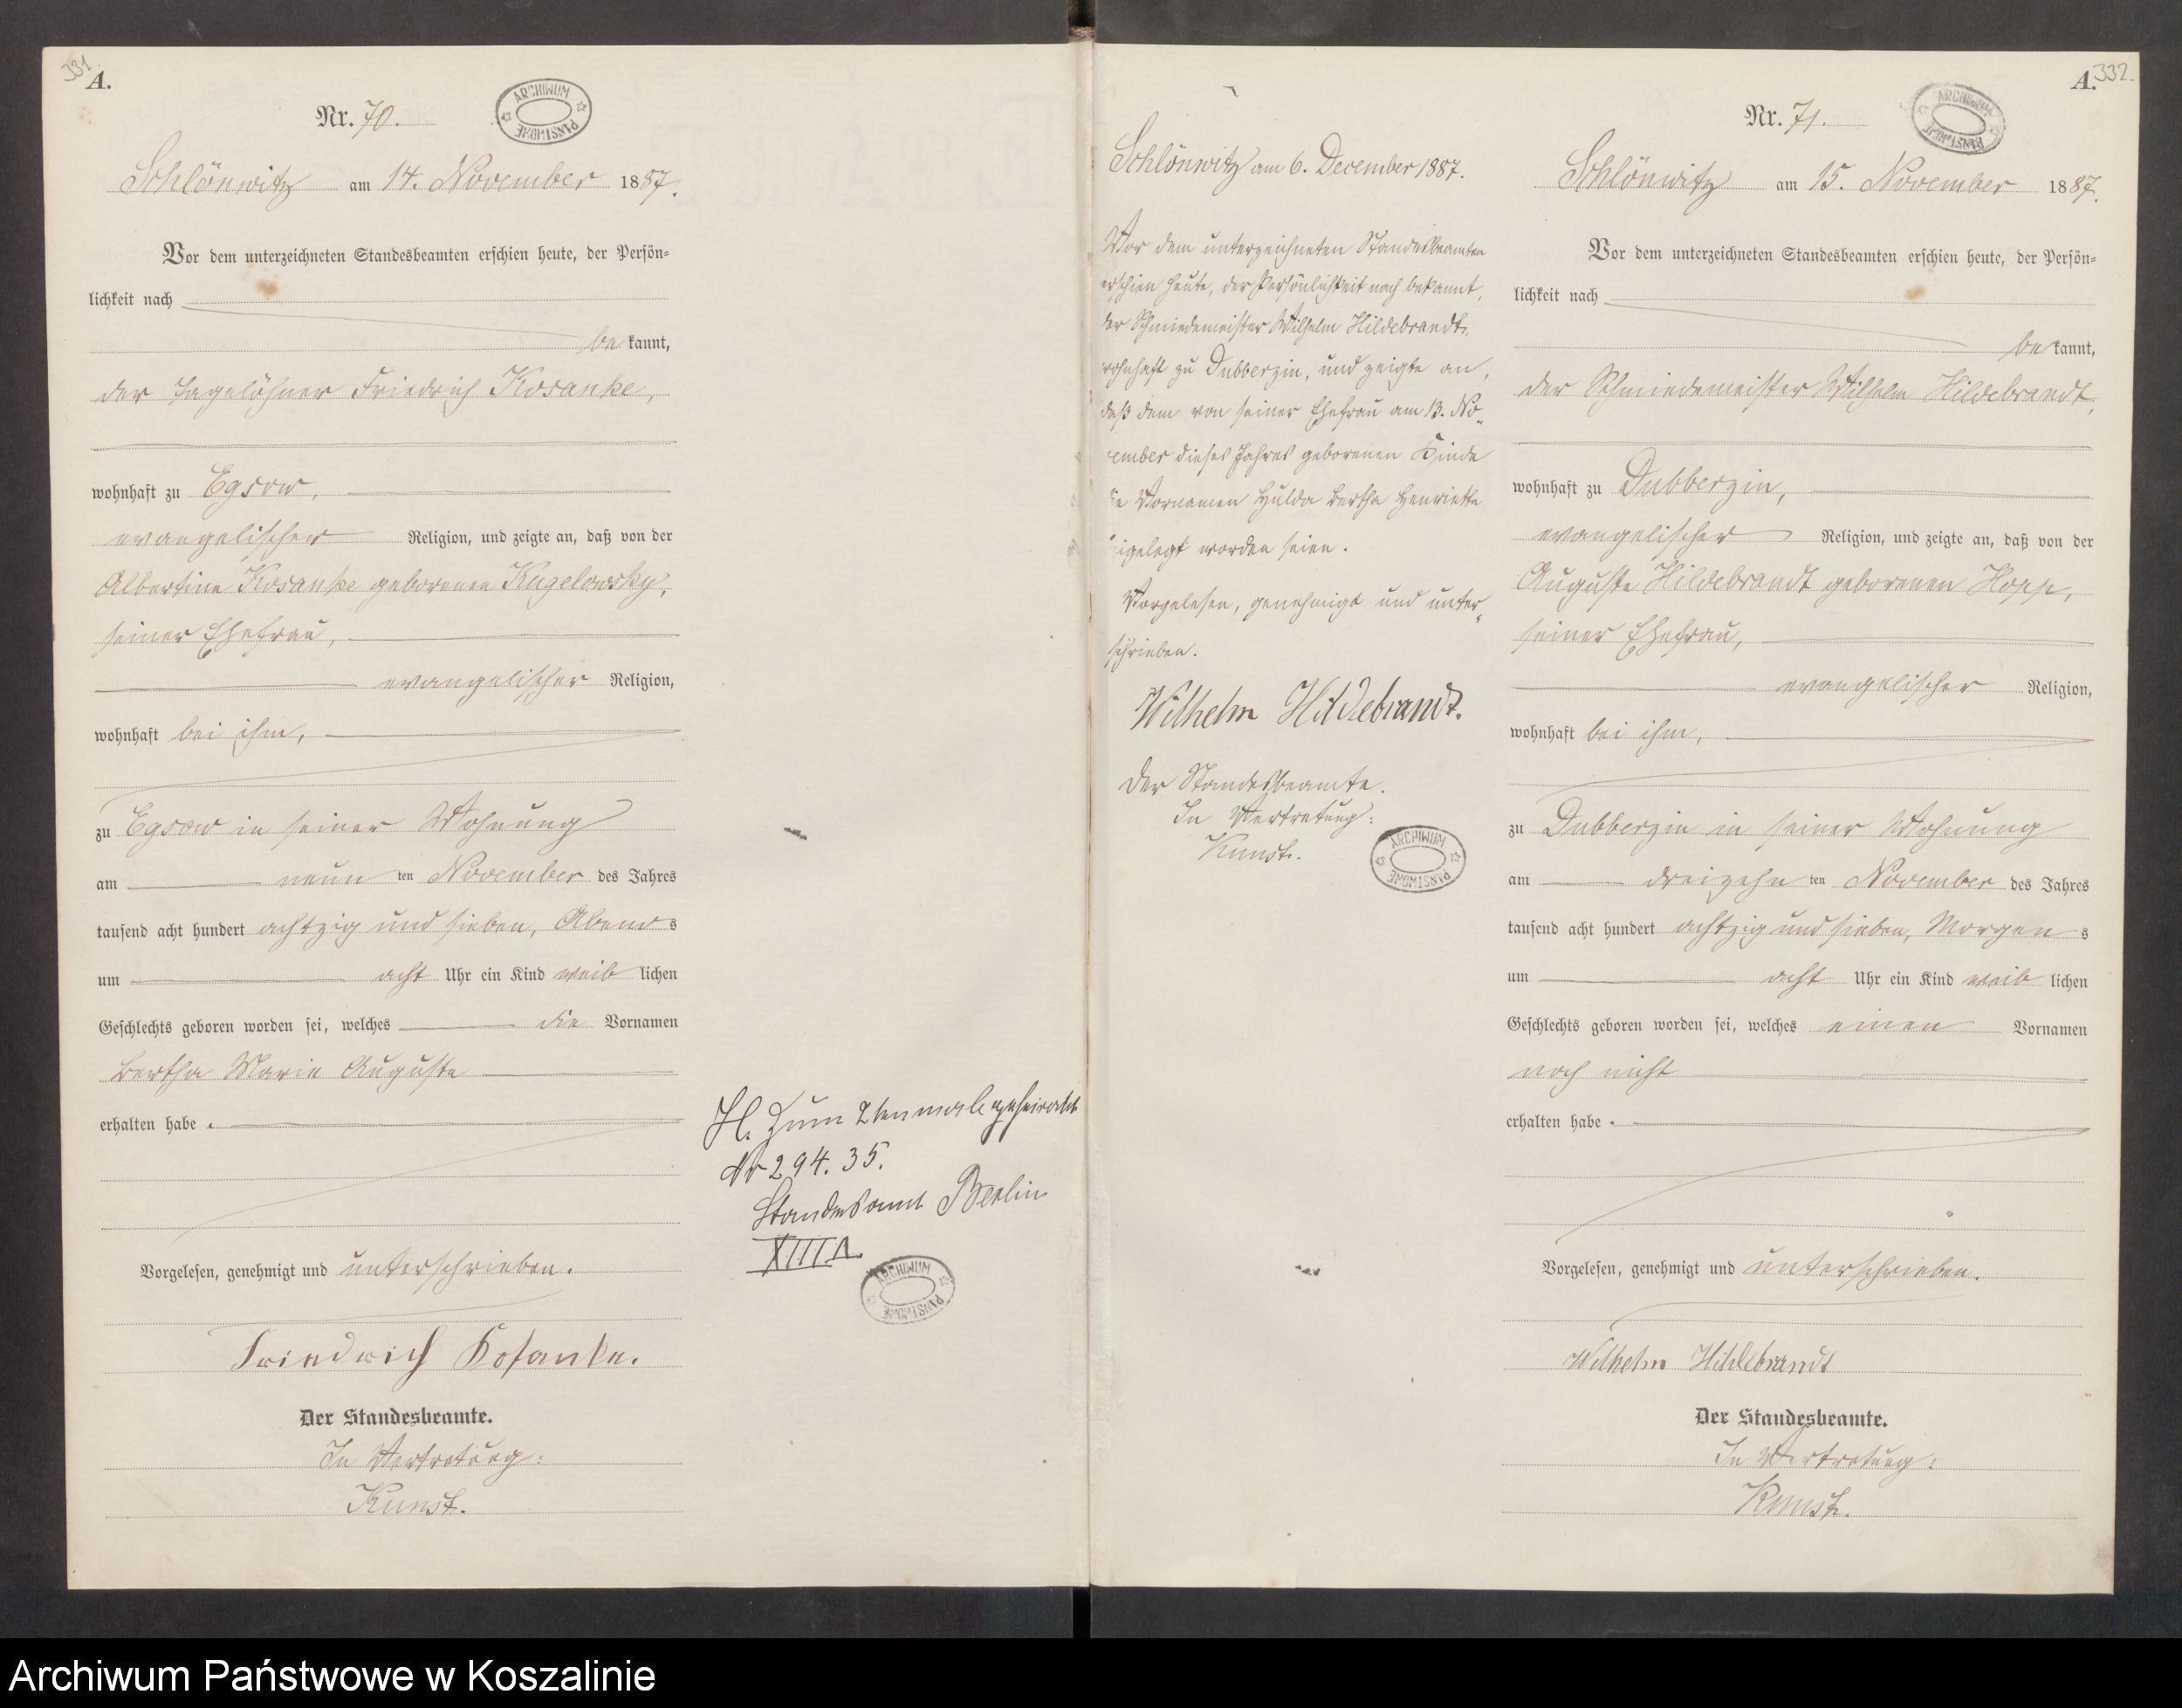 331.
A.
Nr. 70.
ARCHIWUM PAŃSTWOWE
Schlönwitz am 14. November 1887.
Vor dem unterzeichneten Standesbeamten erschien heute, der Persön-
lichkeit nach
be kannt,
der Tagelöhner Friedrich Kosanke,
wohnhaft zu Egsow,
evangelischer Religion, und zeigte an, daß von der
Albertine Kosanke geborenen Kugelowsky,
seiner Ehefrau,
evangelischer Religion,
wohnhaft bei ihm,
zu Egsow in seiner Wohnung
am neun ten November des Jahres
tausend acht hundert achtzig und sieben, Abend s
um acht Uhr ein Kind weib lichen
Geschlechts geboren worden sei, welches die Vornamen
Bertha Marie Auguste
erhalten habe.
Vorgelesen, genehmigt und unterschrieben.
Friedrich Kosanke.
Der Standesbeamte.
In Vertretung:
Kunst.
H. Zum 2ten male geheiratet
Nr 294. 35.
Standesamt Berlin
XIII A.
ARCHIWUM PAŃSTWOWE
Schlönwitz am 6. December 1887.
Vor dem unterzeichneten Standesbeamten
erschien heute, der Persönlichkeit nach bekannt,
der Schmiedemeister Wilhelm Hildebrandt,
wohnhaft zu Dubberzin, und zeigte an,
daß dem von seiner Ehefrau am 13. No-
vember dieses Jahres geborenen Kinde
die Vornamen Hulda Bertha Henriette
beigelegt worden seien.
Vorgelesen, genehmigt und unter-
schrieben.
Wilhelm Hildebrandt.
Der Standesbeamte.
In Vertretung:
Kunst.
ARCHIWUM PAŃSTWOWE
A. 332.
Nr. 71.
ARCHIWUM PAŃSTWOWE
Schlönwitz am 15. November 1887.
Vor dem unterzeichneten Standesbeamten erschien heute, der Persön-
lichkeit nach
be kannt,
der Schmiedemeister Wilhelm Hildebrandt,
wohnhaft zu Dubberzin,
evangelischer Religion, und zeigte an, daß von der
Auguste Hildebrandt geborenen Hopp,
seiner Ehefrau,
evangelischer Religion,
wohnhaft bei ihm,
zu Dubberzin in seiner Wohnung
am dreizehn ten November des Jahres
tausend acht hundert achtzig und sieben, Morgen s
um acht Uhr ein Kind weib lichen
Geschlechts geboren worden sei, welches einen Vornamen
noch nicht
erhalten habe.
Vorgelesen, genehmigt und unterschrieben.
Wilhelm Hildebrandt
Der Standesbeamte.
In Vertretung:
Kunst.
Archiwum Państwowe w Koszalinie